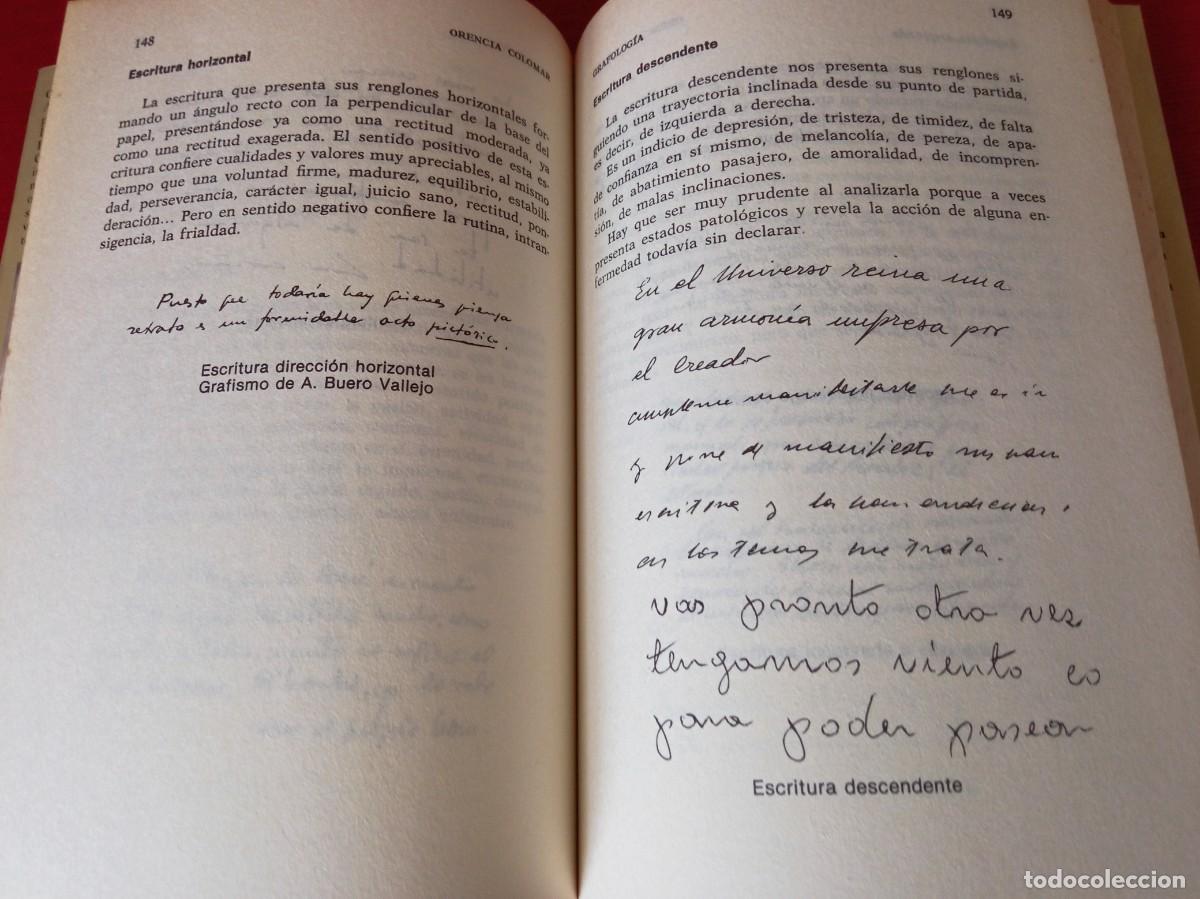 148
ORENCIA COLOMAR
Escritura horizontal
La escritura que presenta sus renglones horizontales for-
mando un ángulo recto con la perpendicular de la base del
papel, presentándose ya como una rectitud moderada, ya
como una rectitud exagerada. El sentido positivo de esta es-
critura confiere cualidades y valores muy apreciables, al mismo
tiempo que una voluntad firme, madurez, equilibrio, estabili-
dad, perseverancia, carácter igual, juicio sano, rectitud, pon-
deración... Pero en sentido negativo confiere la rutina, intran-
sigencia, la frialdad.
Puesto que todavía hay quienes piensa
retrato es un formidable acto pictórico.
Escritura dirección horizontal
Grafismo de A. Buero Vallejo
GRAFOLOGÍA
149
Escritura descendente
La escritura descendente nos presenta sus renglones si-
guiendo una trayectoria inclinada desde su punto de partida,
es decir, de izquierda a derecha.
Es un indicio de depresión, de tristeza, de timidez, de falta
de confianza en sí mismo, de melancolía, de pereza, de apa-
tía, de abatimiento pasajero, de amoralidad, de incompren-
sión, de malas inclinaciones.
Hay que ser muy prudente al analizarla porque a veces
presenta estados patológicos y revela la acción de alguna en-
fermedad todavía sin declarar.
En el Universo reina una
gran armonía impresa por
el Creador
manifestarle me es in
y pone de manifiesto sus
escritora y la han
en los temas me trata.
vas pronto otra vez
tengamos viento eo
para poder pasear
Escritura descendente
todocoleccion